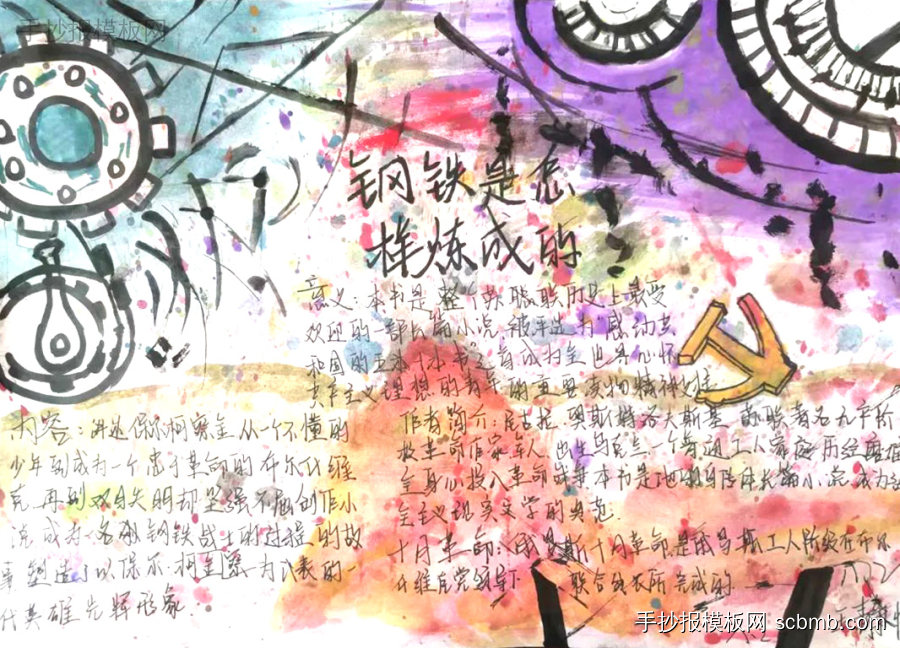 手抄报模板网
钢铁是怎
样炼成的
意义:本书是整个苏联联历史上最受
欢迎的一部长篇小说,被评选为"感动共
和国的五本本书"之首成为全世界心怀
共产主义理想的青年的重要读物精神
内容:讲述保尔柯察金从一个不懂的
少年到成为一个忠于革命的布尔什维
克,再到双目失明却坚强不屈创作小
说成为一名刚钢铁战士的过程的故
事塑造了以保尔·柯金察为代表的一
代英雄先辉形象.
作者简介:尼古拉.奥斯特洛夫斯基 苏联著名无产阶
级革命作家军人,出生乌克兰一个普通工人家庭历经磨难
全身心投入革命战事本书是他的自传体长篇小说成为社
会主义现实文学的典范.
十月革命:俄罗斯十月革命是俄乌 工人阶级在布尔
什维克党领导下 联合 农所完成的
手抄报模板网 scbmb.com